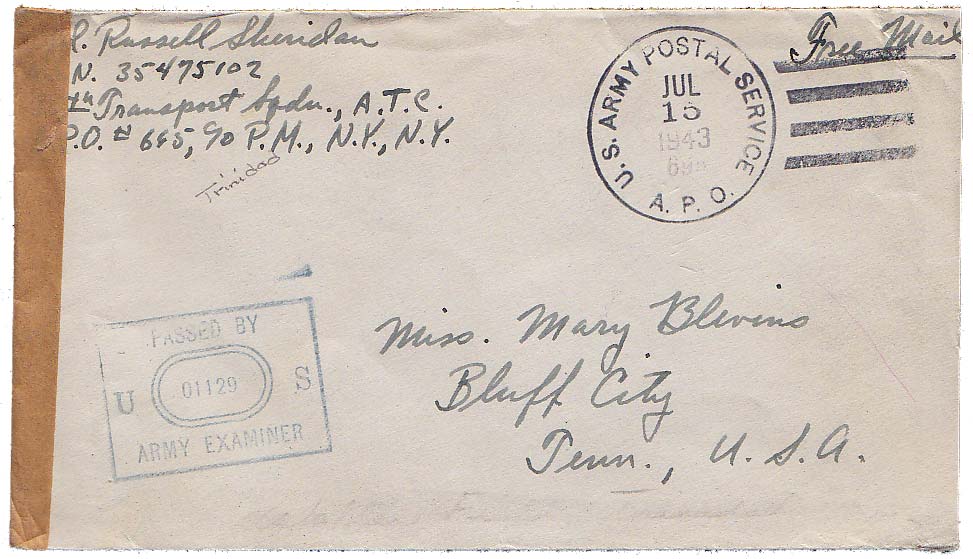 Russell Sheridan
N. 35475102
Transport Sqdn., A.T.C.
P.O. # 665, % P.M., N.Y., N.Y.
Trinidad
U.S. ARMY POSTAL SERVICE
JUL
15
1943
A. P. O.
Free Mail
PASSED BY
U 01129 S
ARMY EXAMINER
Miss. Mary Blevins
Bluff City
Tenn., U.S.A.